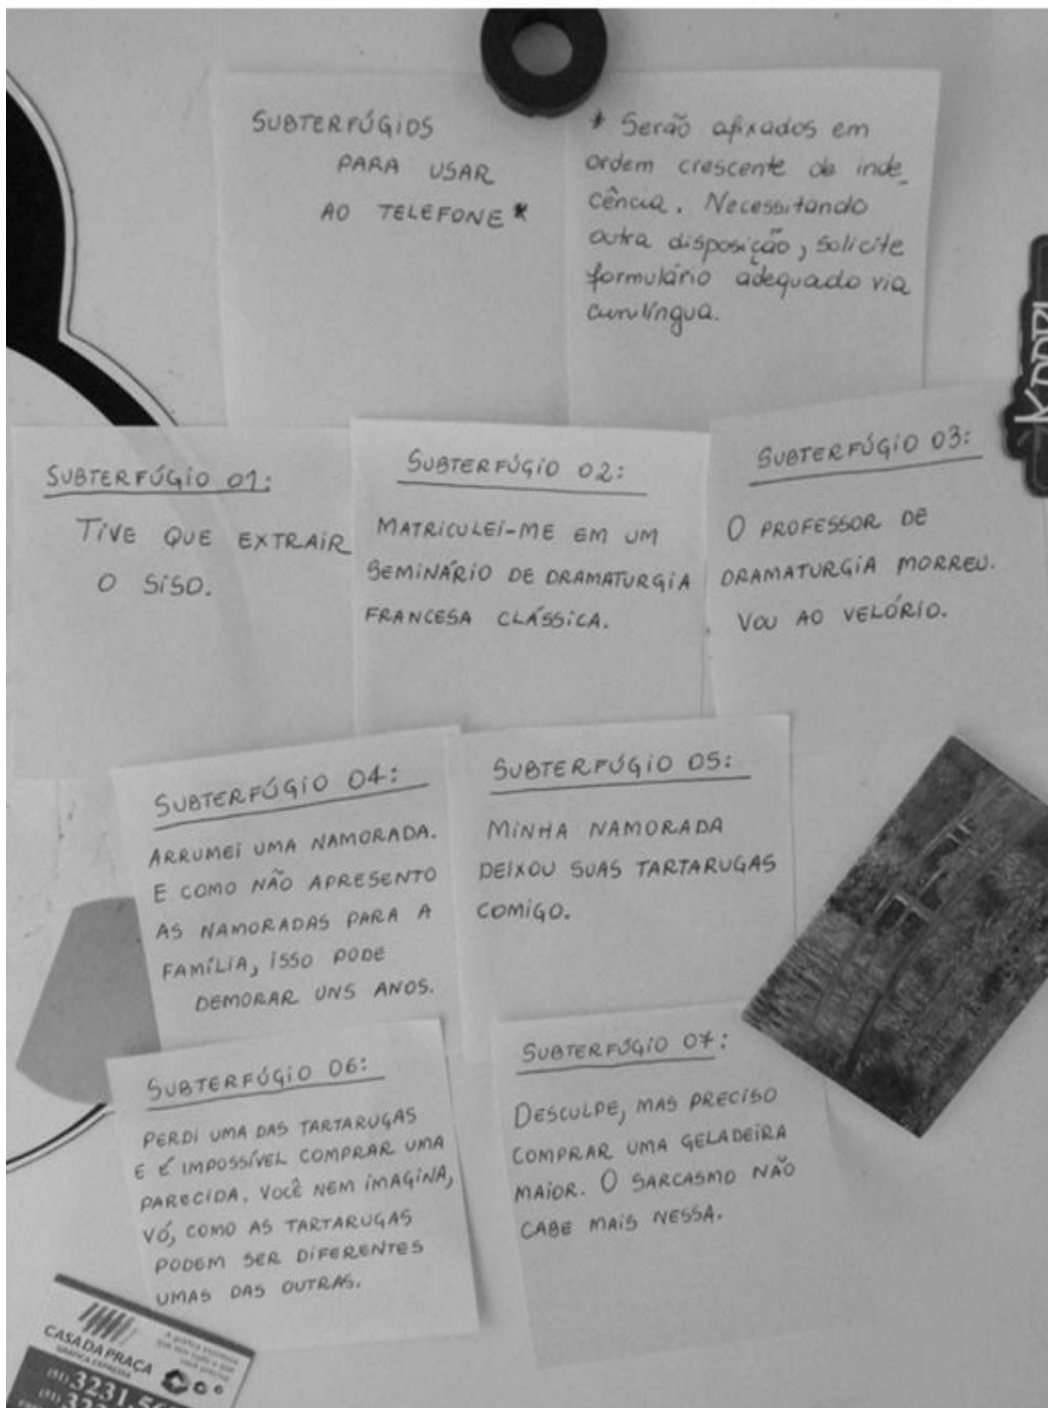 SUBTERFÚGIOS
PARA USAR
AO TELEFONE*
* Serão afixados em
ordem crescente de inde_
cência. Necessitando
outra disposição, solicite
formulário adequado via
cunilíngua.
SUBTERFÚGIO 01:
TIVE QUE EXTRAIR
O SISO.
SUBTERFÚGIO 02:
MATRICULEI-ME EM UM
SEMINÁRIO DE DRAMATURGIA
FRANCESA CLÁSSICA.
SUBTERFÚGIO 03:
O PROFESSOR DE
DRAMATURGIA MORREU.
VOU AO VELÓRIO.
SUBTERFÚGIO 04:
ARRUMEI UMA NAMORADA.
E COMO NÃO APRESENTO
AS NAMORADAS PARA A
FAMÍLIA, ISSO PODE
DEMORAR UNS ANOS.
SUBTERFÚGIO 05:
MINHA NAMORADA
DEIXOU SUAS TARTARUGAS
COMIGO.
SUBTERFÚGIO 06:
PERDI UMA DAS TARTARUGAS
E É IMPOSSÍVEL COMPRAR UMA
PARECIDA. VOCÊ NEM IMAGINA,
VÓ, COMO AS TARTARUGAS
PODEM SER DIFERENTES
UMAS DAS OUTRAS.
SUBTERFÚGIO 07:
DESCULPE, MAS PRECISO
COMPRAR UMA GELADEIRA
MAIOR. O SARCASMO NÃO
CABE MAIS NESSA.
CASA DA PRAÇA
GRÁFICA EXPRESSA
(51) 3231.5